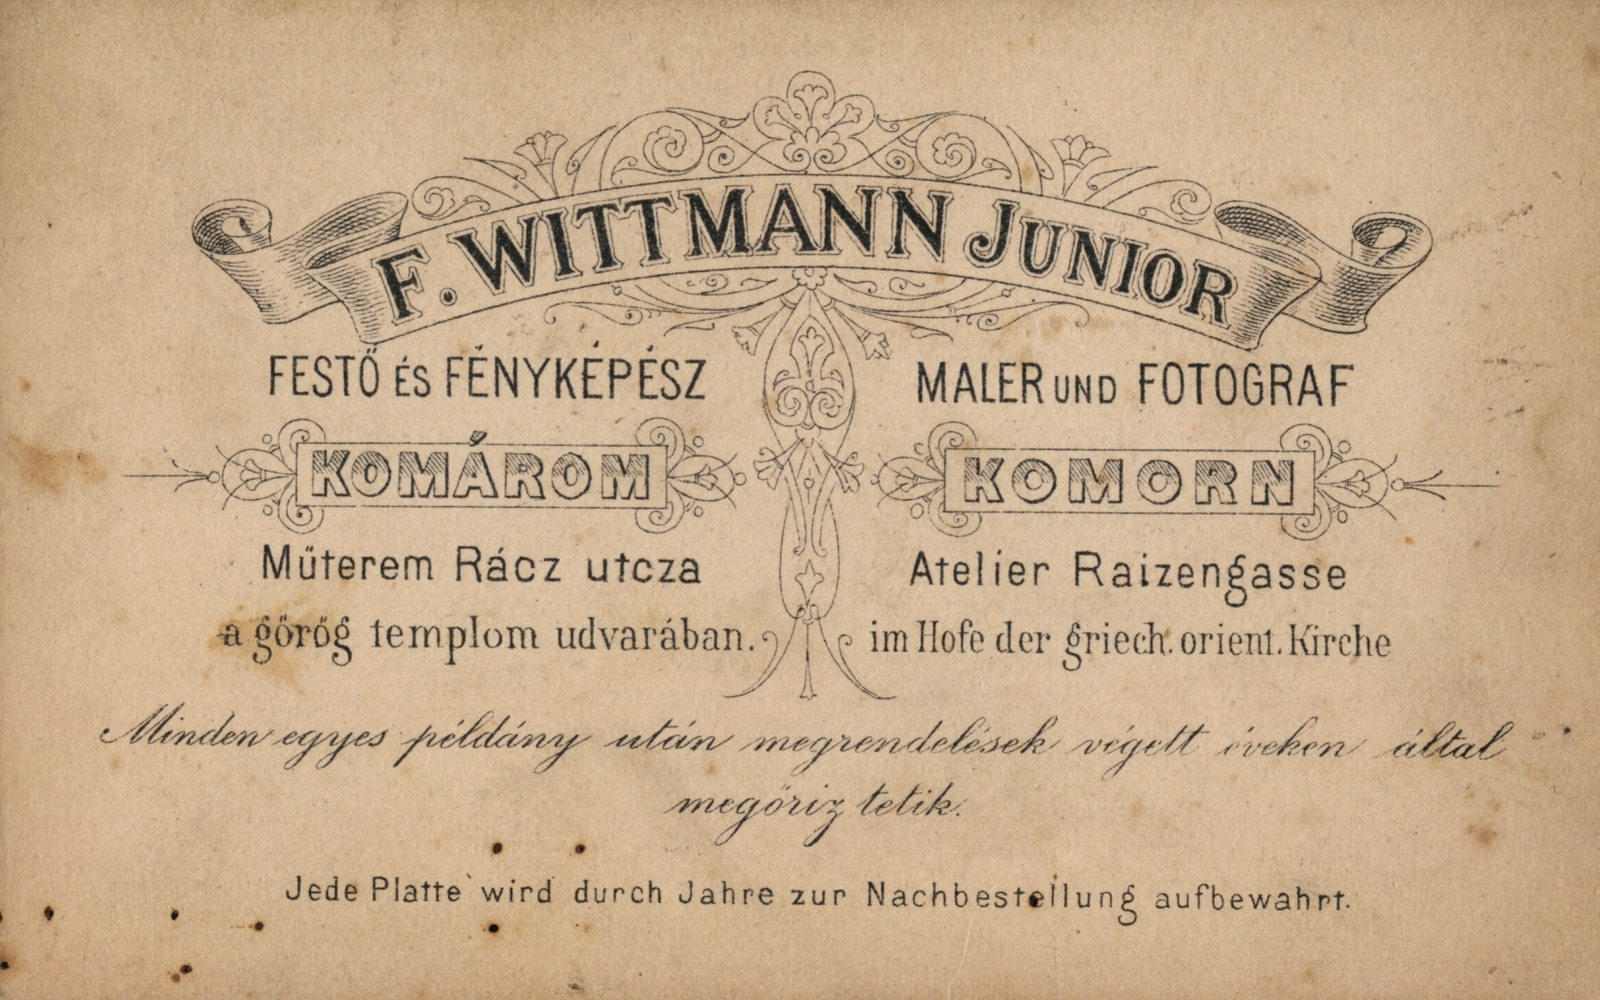 F. WITTMANN JUNIOR
FESTŐ ÉS FÉNYKÉPÉSZ
KOMÁROM
Műterem Rácz utcza
a görög templom udvarában.
MALER UND FOTOGRAF
KOMORN
Atelier Raizengasse
im Hofe der griech. orient. Kirche
Minden egyes példány után megrendelések végett éveken által
megőriz tetik.
Jede Platte wird durch Jahre zur Nachbestellung aufbewahrt.